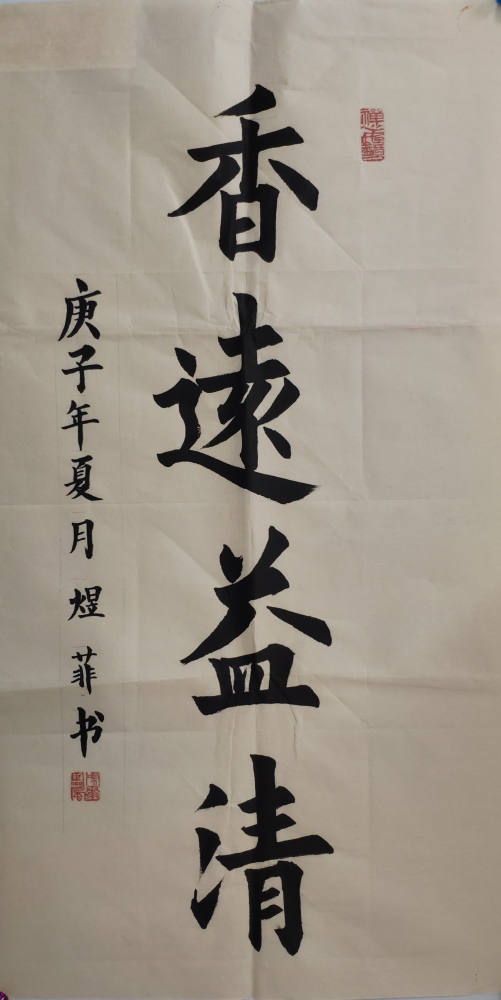 香遠益清
庚子年夏月煜菲书